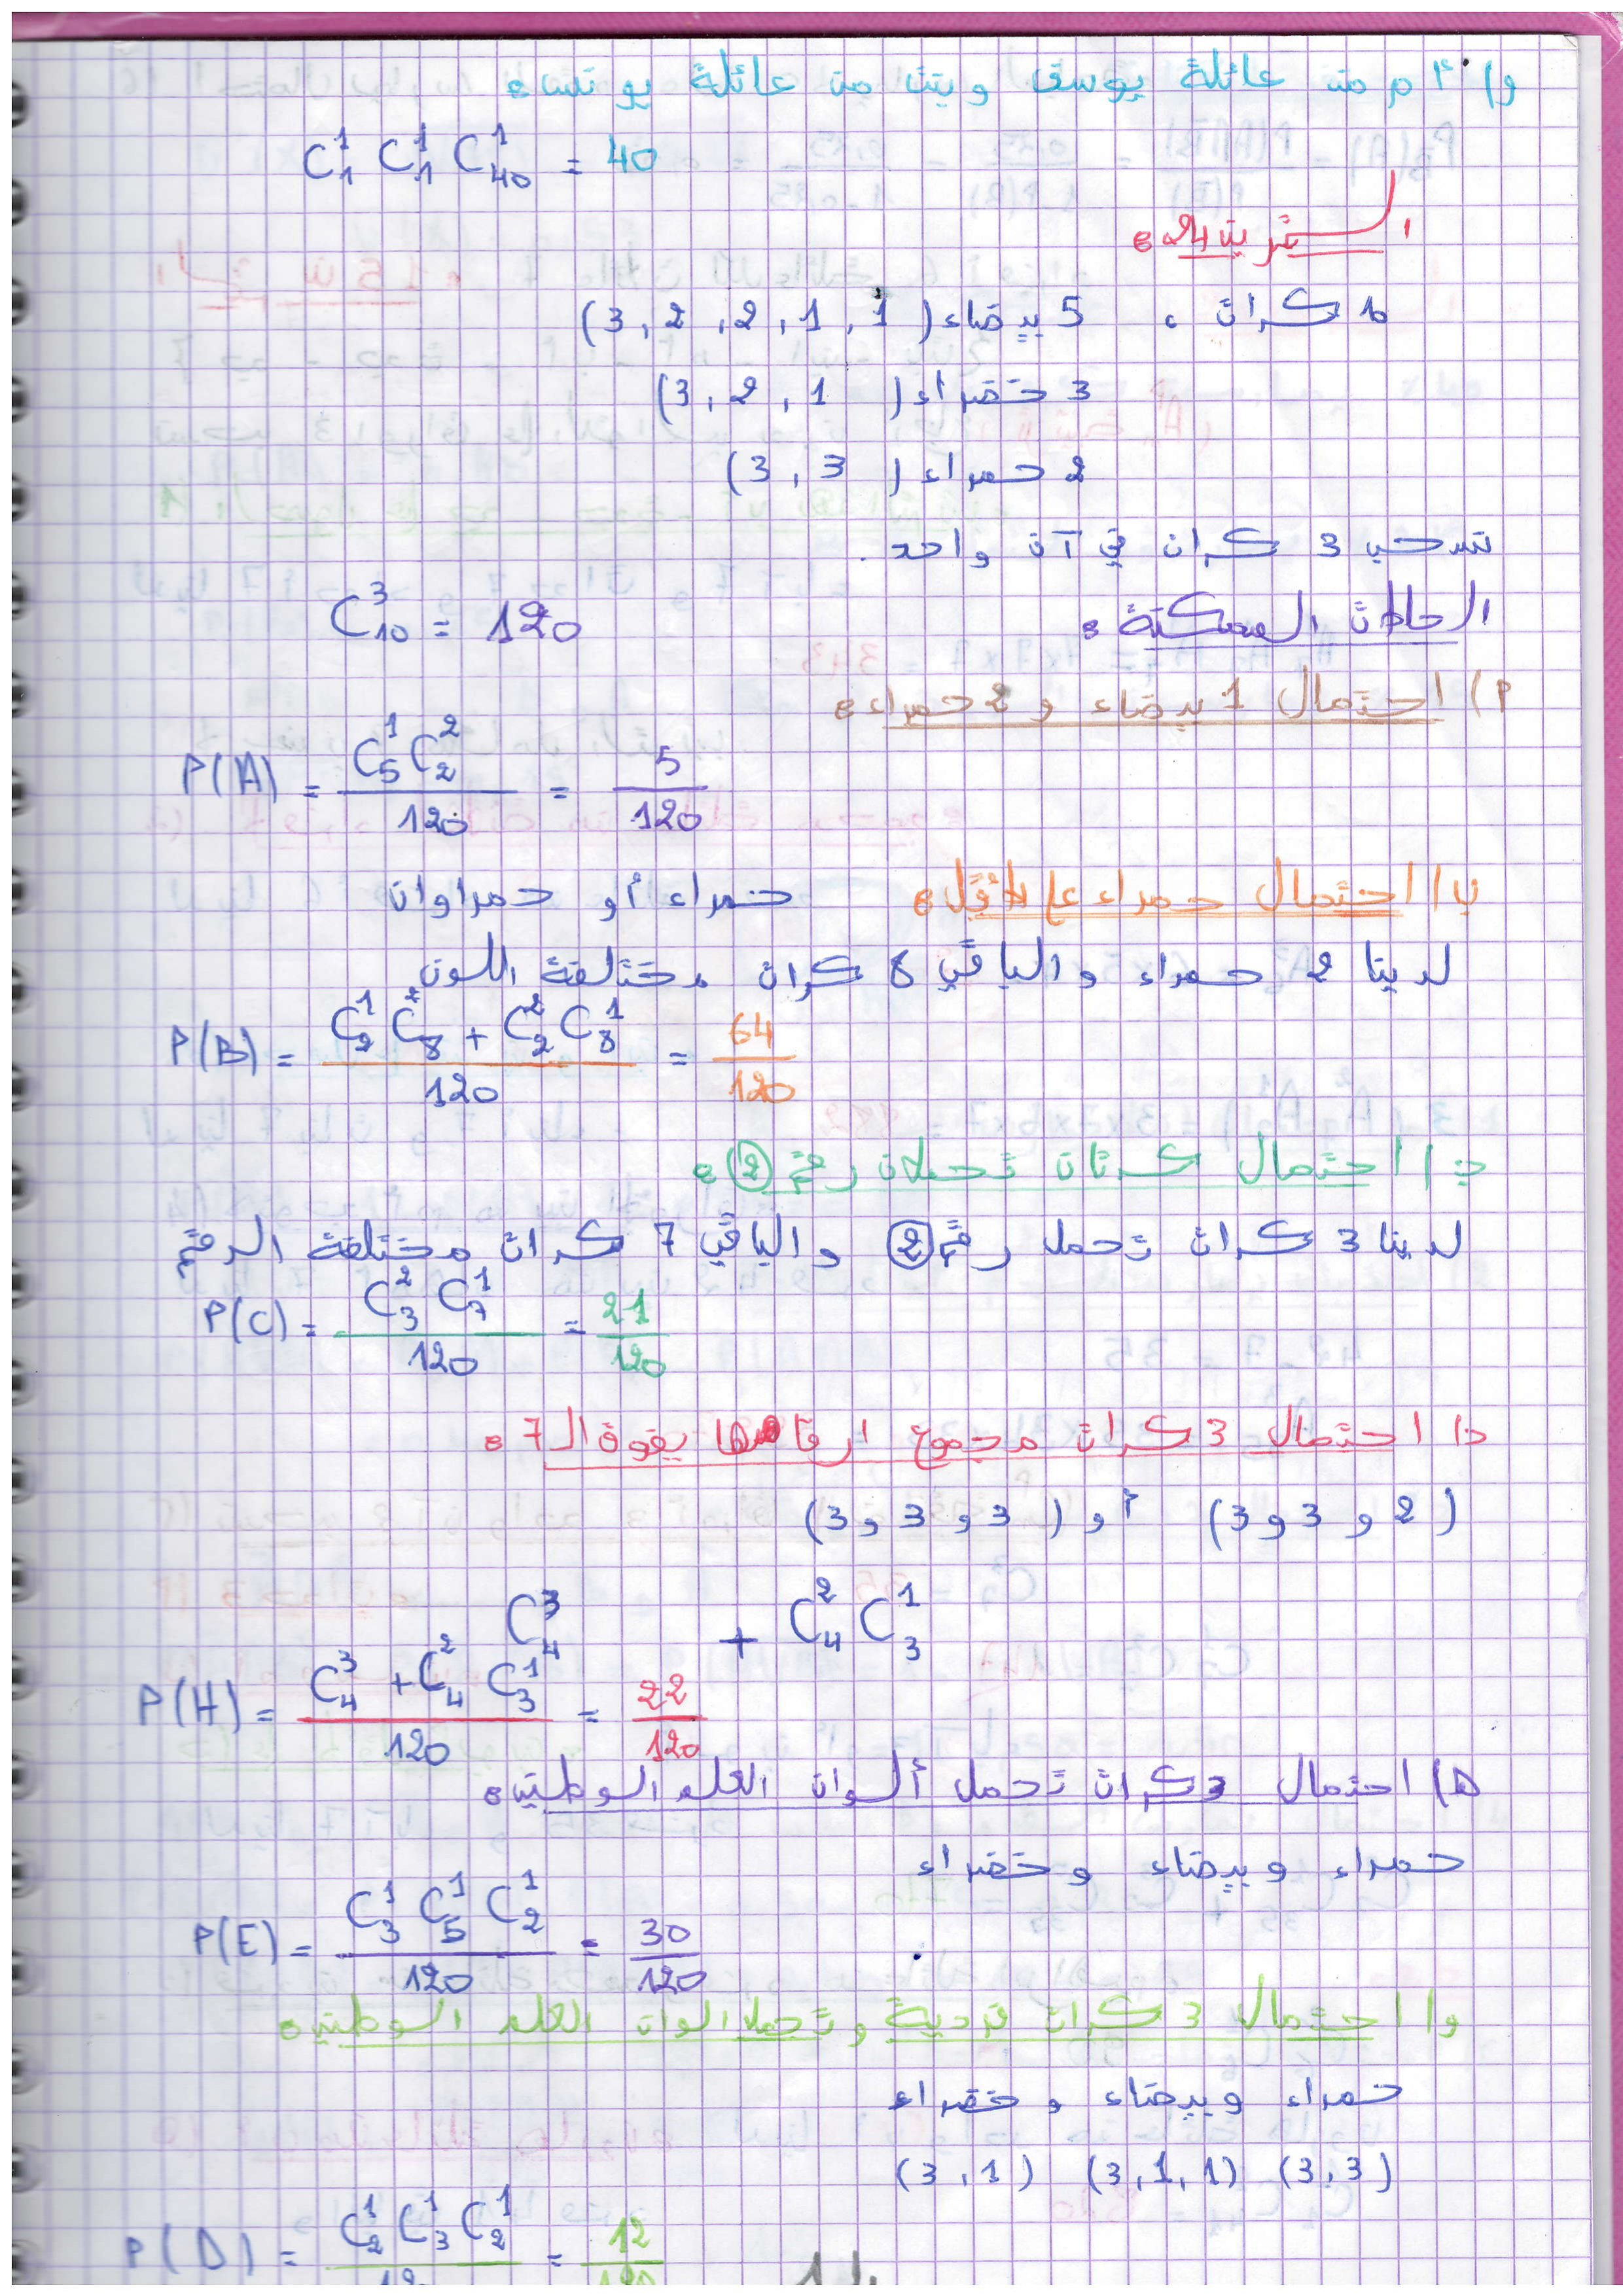 و) أم من عائلة يوسف وبنت من عائلة يونس:
C₁¹ C₁¹ C₄₀¹ = 40
التمرين 24:
10 كرات ، 5 بيضاء (1 , 1 , 2 , 2 , 3)
3 خضراء (1 , 2 , 3)
2 حمراء (3 , 3)
نسحب 3 كرات في آن واحد .
الحالات الممكنة: C₁₀³ = 120
أ) احتمال 1 بيضاء و 2 حمراء:
P(A) = C₅¹ C₂² / 120 = 5/120
ب) احتمال حمراء على الأقل: حمراء أو حمراوان
لدينا 2 حمراء والباقي 8 كرات مختلفة اللون
P(B) = C₂¹ C₈² + C₂² C₈¹ / 120 = 64/120
ج) احتمال كرتان تحملان رقم ②:
لدينا 3 كرات تحمل رقم ② والباقي 7 كرات مختلفة الرقم
P(C) = C₃² C₇¹ / 120 = 21/120
د) احتمال 3 كرات مجموع ارقامها يفوق الـ 7:
(2 و 3 و 3) أو (3 و 3 و 3)
C₄³ + C₄² C₃¹
P(H) = C₄³ + C₄² C₃¹ / 120 = 22/120
ه) احتمال 3 كرات تحمل ألوان العلم الوطني:
حمراء وبيضاء وخضراء
P(E) = C₃¹ C₅¹ C₂¹ / 120 = 30/120
و) احتمال 3 كرات فردية وتحمل الوان العلم الوطني:
حمراء وبيضاء وخضراء
(3 , 3) (3 , 1 , 1) (3 , 1)
P(D) = C₂¹ C₃¹ C₂¹ / 120 = 12/120